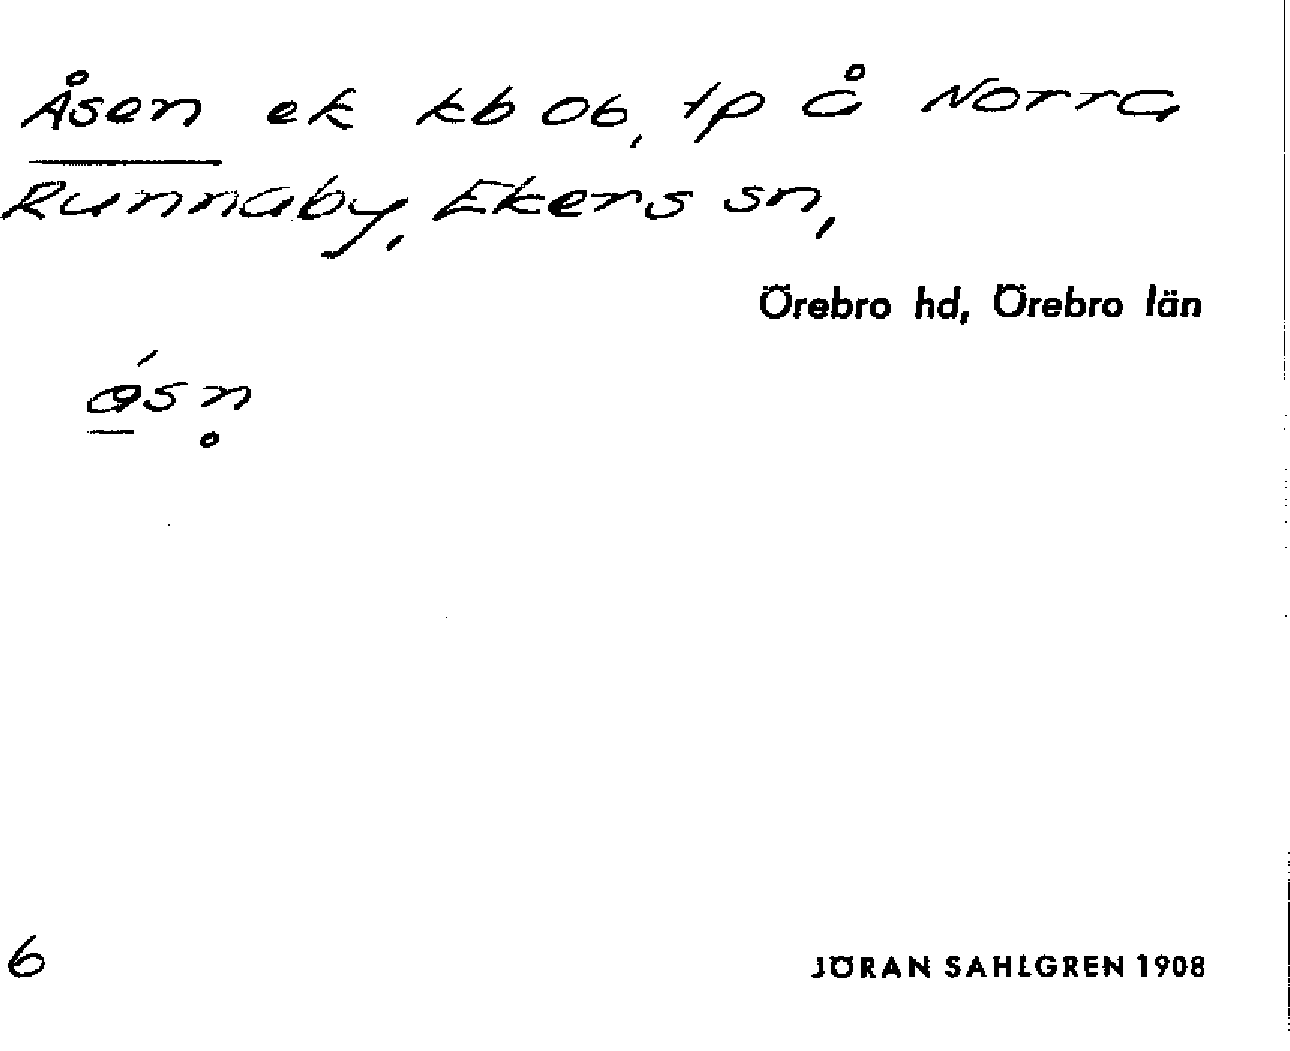 Åsen ek kb 06, tp å Norra
Runnaby, Ekers sn,
Örebro hd, Örebro län
ásn̥
6
JÖRAN SAHLGREN 1908